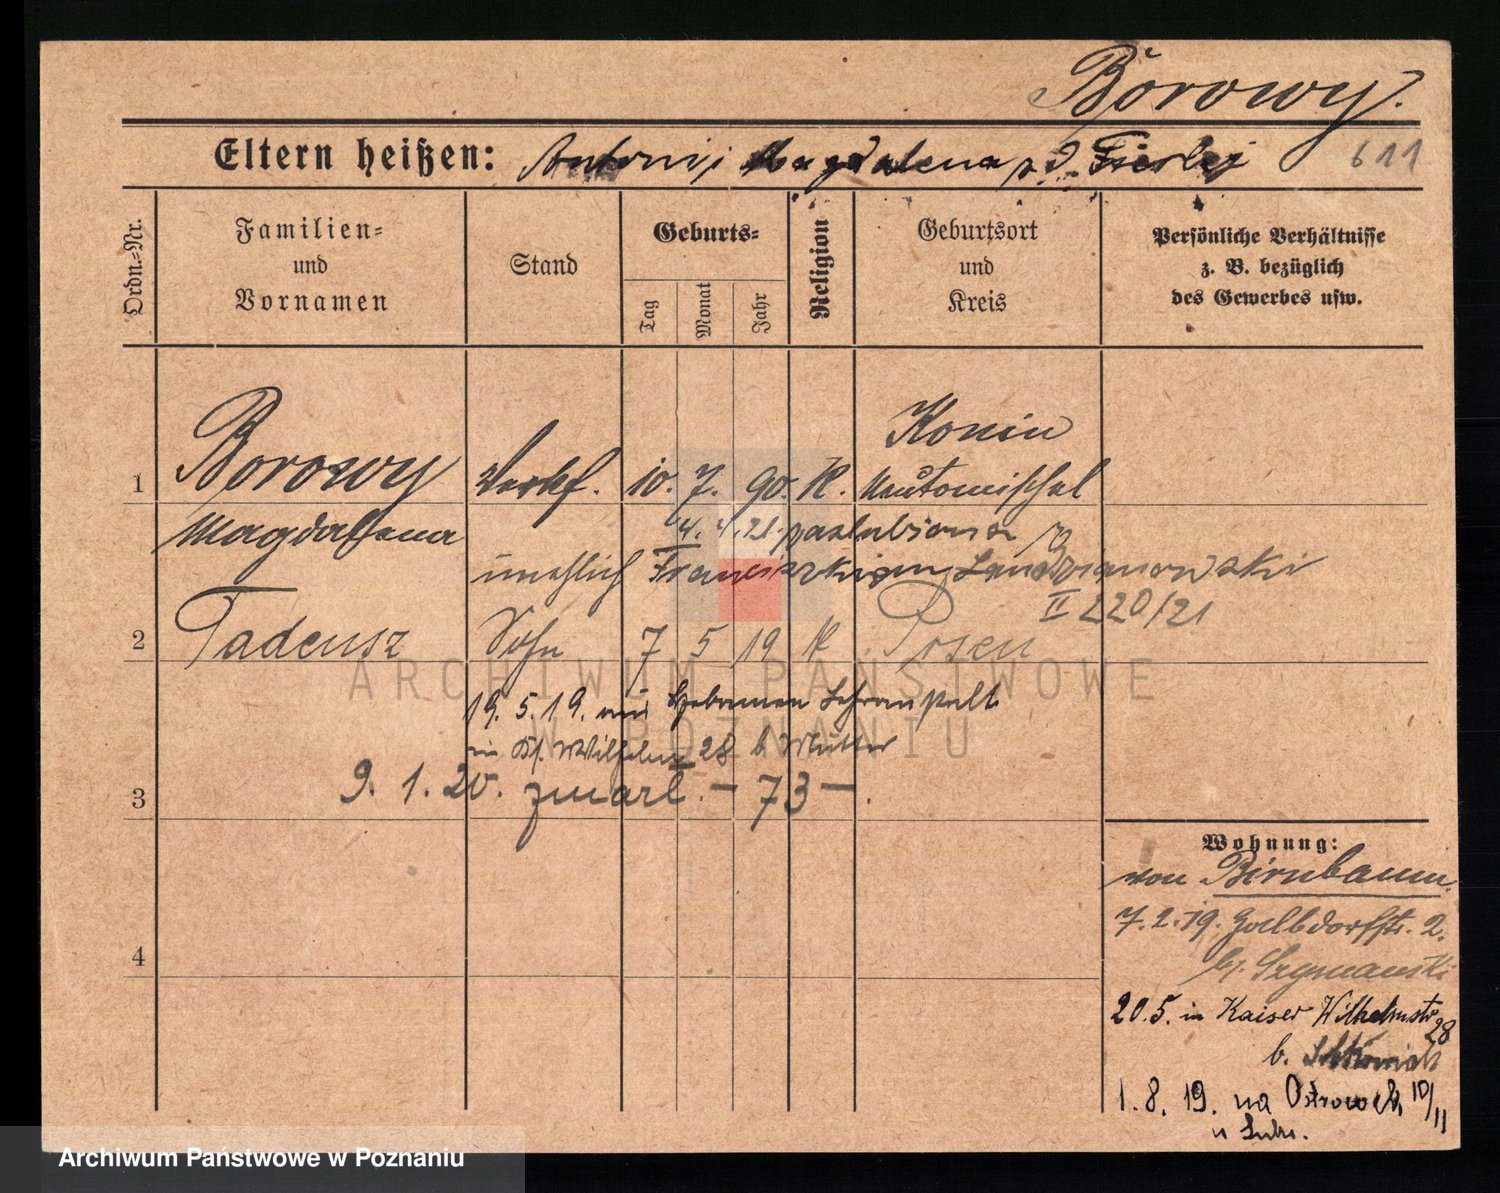 Borowy.
Eltern heißen: Antoni i Magdalena z d. Fierlej
611
Ordn.-Nr.
Familien-
und
Vornamen
Stand
Geburts-
Tag
Monat
Jahr
Religion
Geburtsort
und
Kreis
Persönliche Verhältnisse
z. B. bezüglich
des Gewerbes usw.
Konin
1 Borowy 10. 7. 90. K. Neutomischel
Magdalena 4. 4. 21. poślubiona
unehlich Franciszkiem Lewandowski
II 220/21
2 Tadeusz Sohn 7 5 19 K Posen
19. 5. 19. aus Hebammen Lehranstalt
in K. Wilhelm 28 b Mutter
3 9. 1. 20. zmarł. – 73 – .
4
Wohnung:
von Birnbaum.
7. 2. 19. 2.
b/ Szymański
20. 5. in Kaiser Wilhelmstr 28
b.
1. 8. 19. na Ostrowek 10/11
u
ARCHIWUM PAŃSTWOWE
W POZNANIU
Archiwum Państwowe w Poznaniu